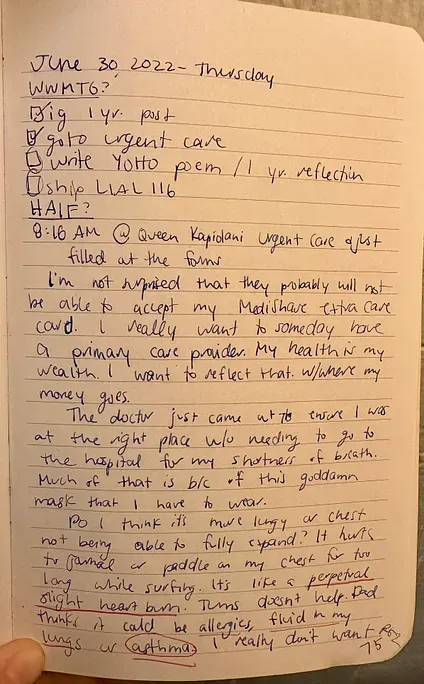 June 30, 2022 - Thursday
WWMTG?
☑ ig 1 yr. post
☑ goto urgent care
☐ write YOTTO poem / 1 yr. reflection
☐ ship LIAL 116
HAIF?
8:16 AM @ Queen Kapiolani Urgent Care & just
filled at the forms
I'm not surprised that they probably will not
be able to accept my MediShare extra care
card. I really want to someday have
a primary care provider. My health is my
wealth. I want to reflect that w/where my
money goes.
The doctor just came out to ensure I was
at the right place w/o needing to go to
the hospital for my shortness of breath.
Much of that is b/c of this goddamn
mask that I have to wear.
Do I think it's more lungy or chest
not being able to fully expand? It hurts
to journal or paddle on my chest for too
long while surfing. It's like a perpetual
slight heart burn. Tums doesn't help. Dad
thinks it could be allergies, fluid in my
lungs or asthma. I really don't want
75